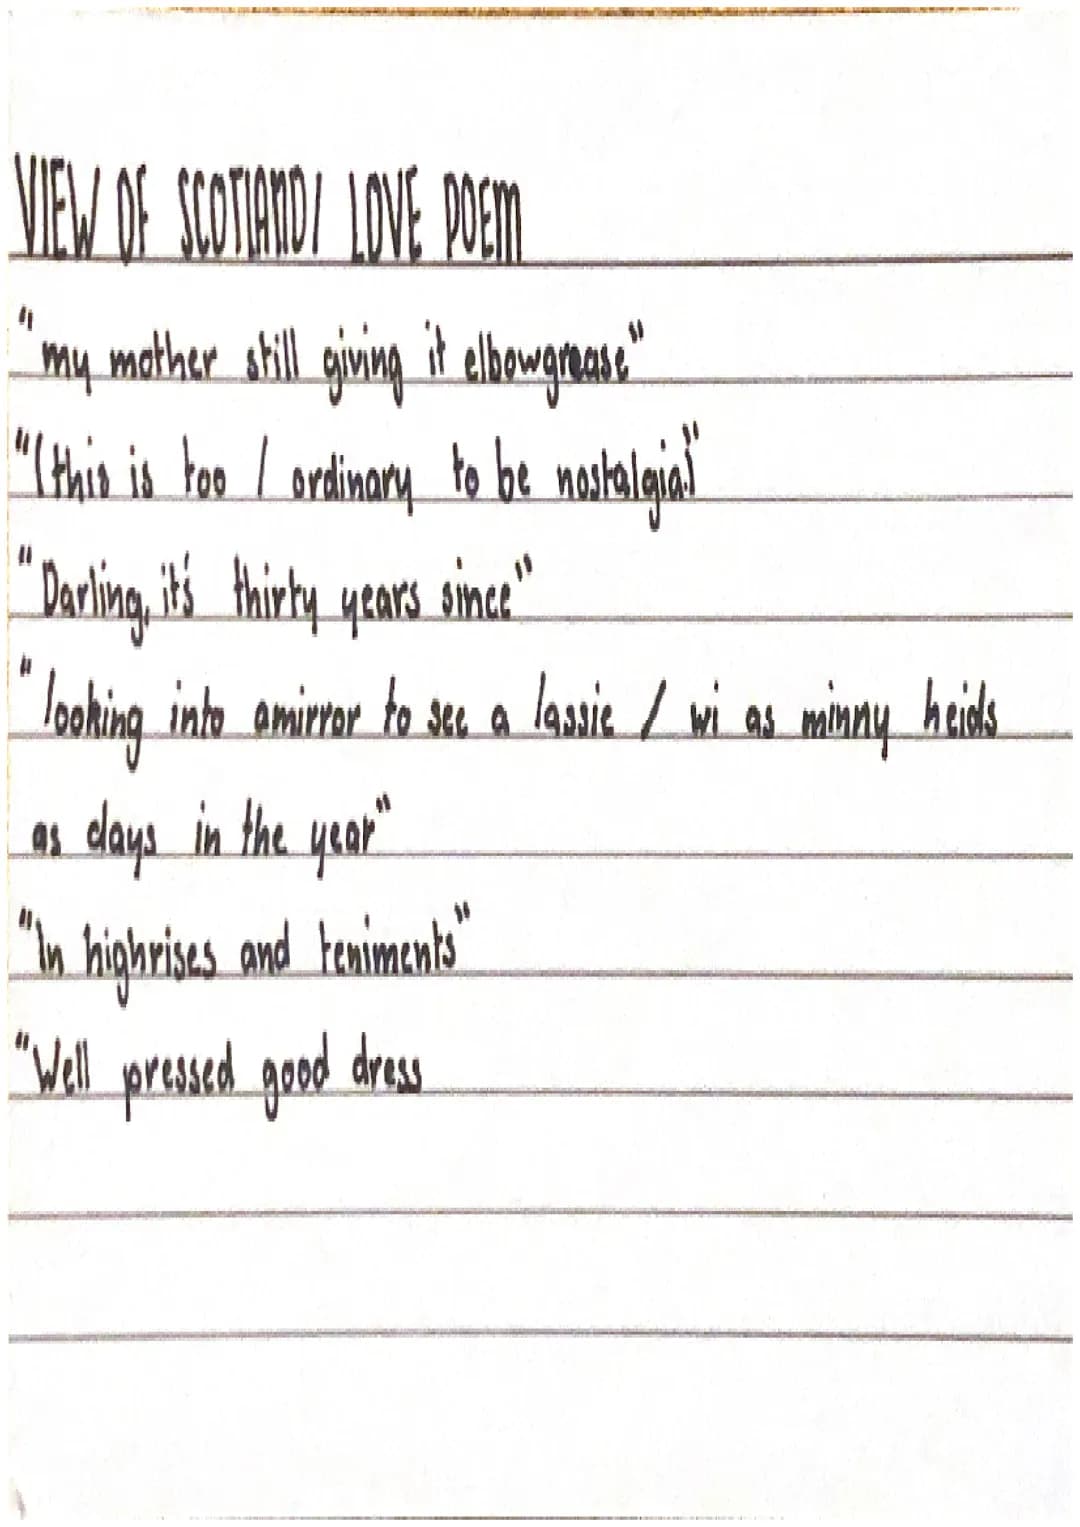 VIEW OF SCOTLAND/ LOVE POEM
"my mother still giving it elbowgrease"
"(this is too / ordinary to be nostalgia)"
"Darling, it's thirty years since"
"looking into amirror to see a lassie / wi as minny heids
as days in the year"
"In highrises and teniments"
"Well pressed good dress